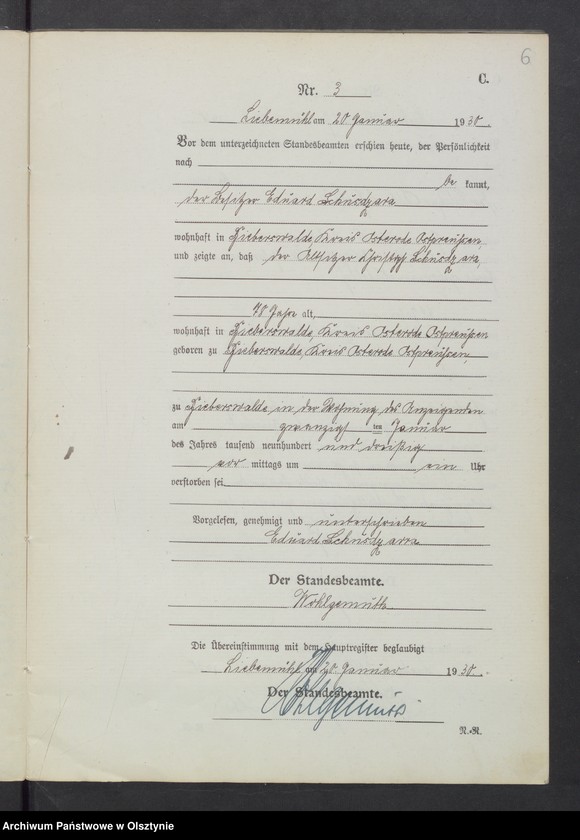 6
C.
Nr. 3
Liebemühl am 20 Januar 1930.
Vor dem unterzeichneten Standesbeamten erschien heute, der Persönlichkeit
nach
be kannt,
der Besitzer Eduard
wohnhaft in Bieberswalde, Kreis Osterode Ostpreußen,
und zeigte an, daß der Altsitzer
78 Jahre alt,
wohnhaft in Bieberswalde, Kreis Osterode Ostpreußen
geboren zu Bieberswalde, Kreis Osterode Ostpreußen,
zu Bieberswalde in der Wohnung des Anzeigenden
am zwanzigsten Januar
des Jahres tausend neunhundert und dreißig
vor mittags um ein Uhr
verstorben sei.
Vorgelesen, genehmigt und unterschrieben
Eduard
Der Standesbeamte.
Wohlgemuth
Die Übereinstimmung mit dem Hauptregister beglaubigt
Liebemühl am 20. Januar 1930.
Der Standesbeamte.
Wohlgemuth
N.-R.
Archiwum Państwowe w Olsztynie